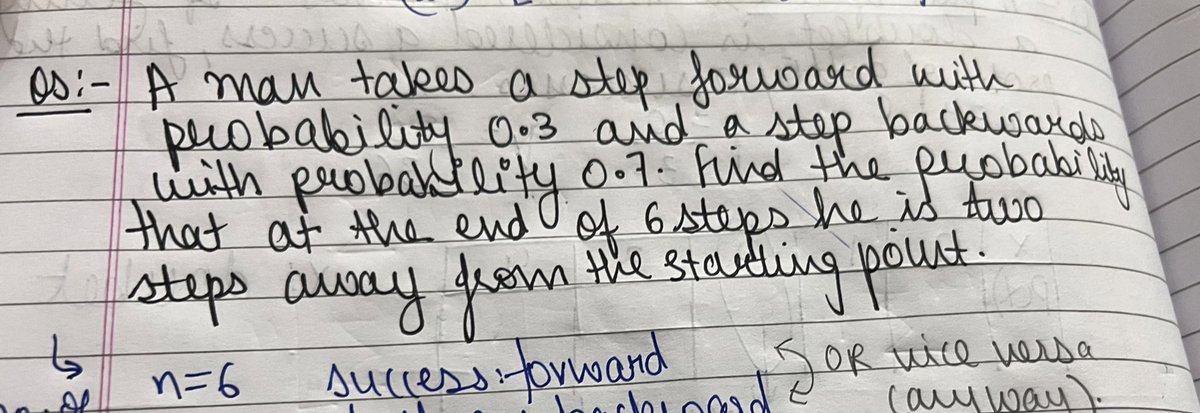 Q5:- A man takes a step forward with
probability 0.3 and a step backwards
with probability 0.7. Find the probability
that at the end of 6 steps he is two
steps away from the starting point.
n=6 success:- forward OR vice versa
backward (anyway).